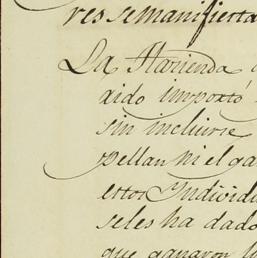 res se manifiesta
La Hacienda
aido importó
sin incluirse
pellan ni el ga
estos Individu
se les ha dado
que ganaron